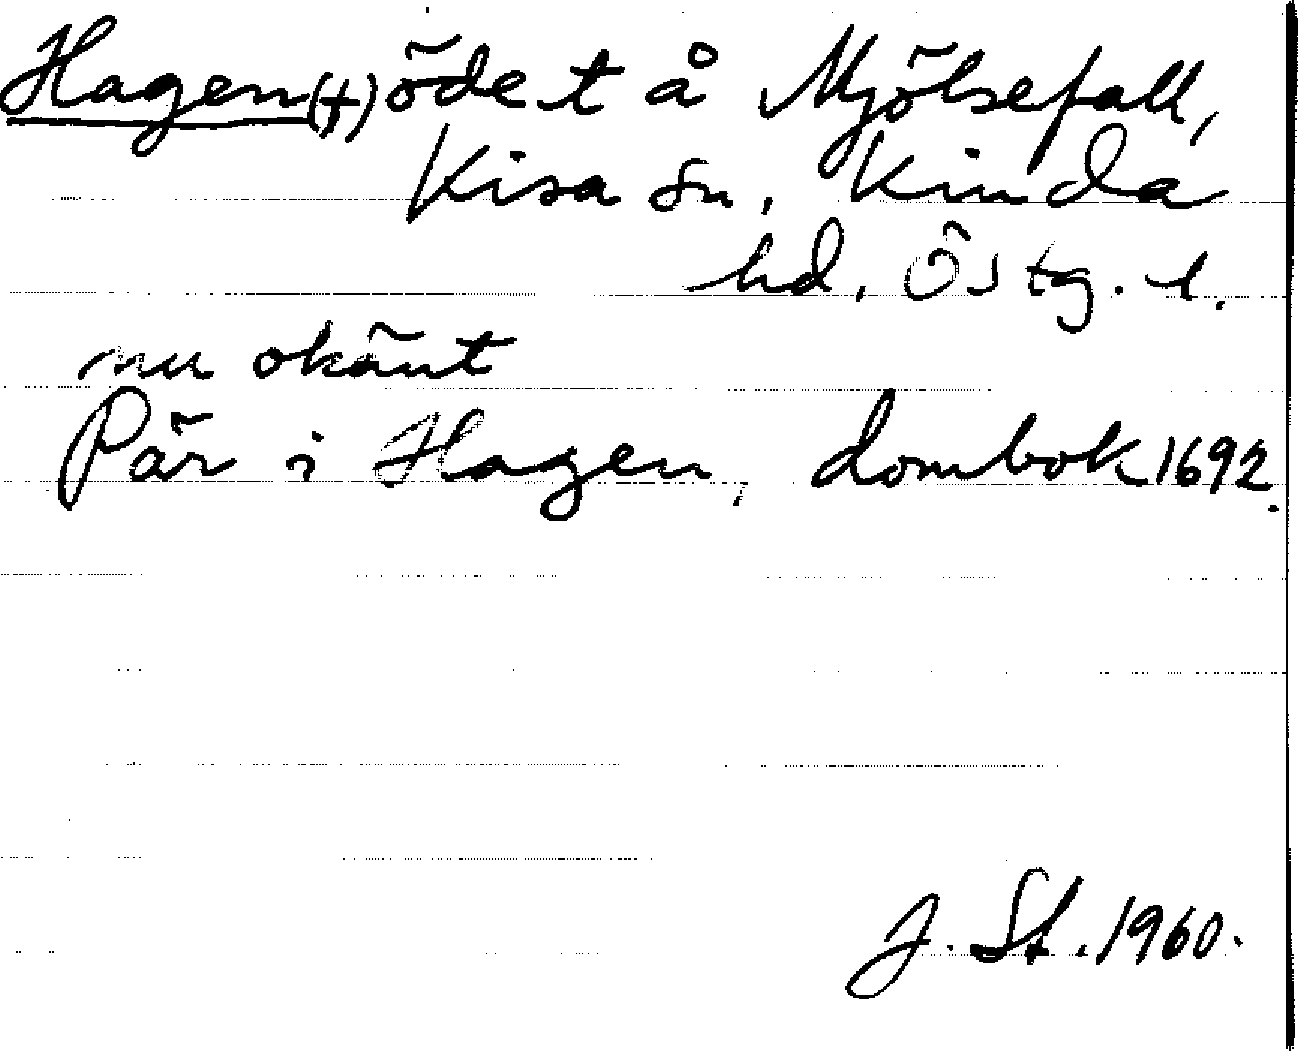 Hagen (†) ödet å Mjölsefall,
Kisa sn, Kinda
hd, Östg. l.
nu okänt
Pär i Hagen, dombok 1692.
J. St. 1960.